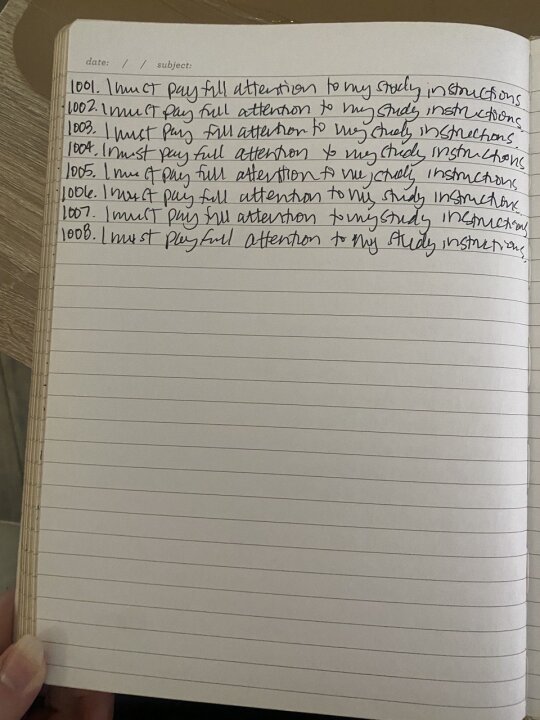 date: / / subject:
1001. I must pay full attention to my study instructions
1002. I must pay full attention to my study instructions.
1003. I must pay full attention to my study instructions
1004. I must pay full attention to my study instructions
1005. I must pay full attention to my study instructions
1006. I must pay full attention to my study instructions.
1007. I must pay full attention to my study instructions
1008. I must play full attention to my study instructions.